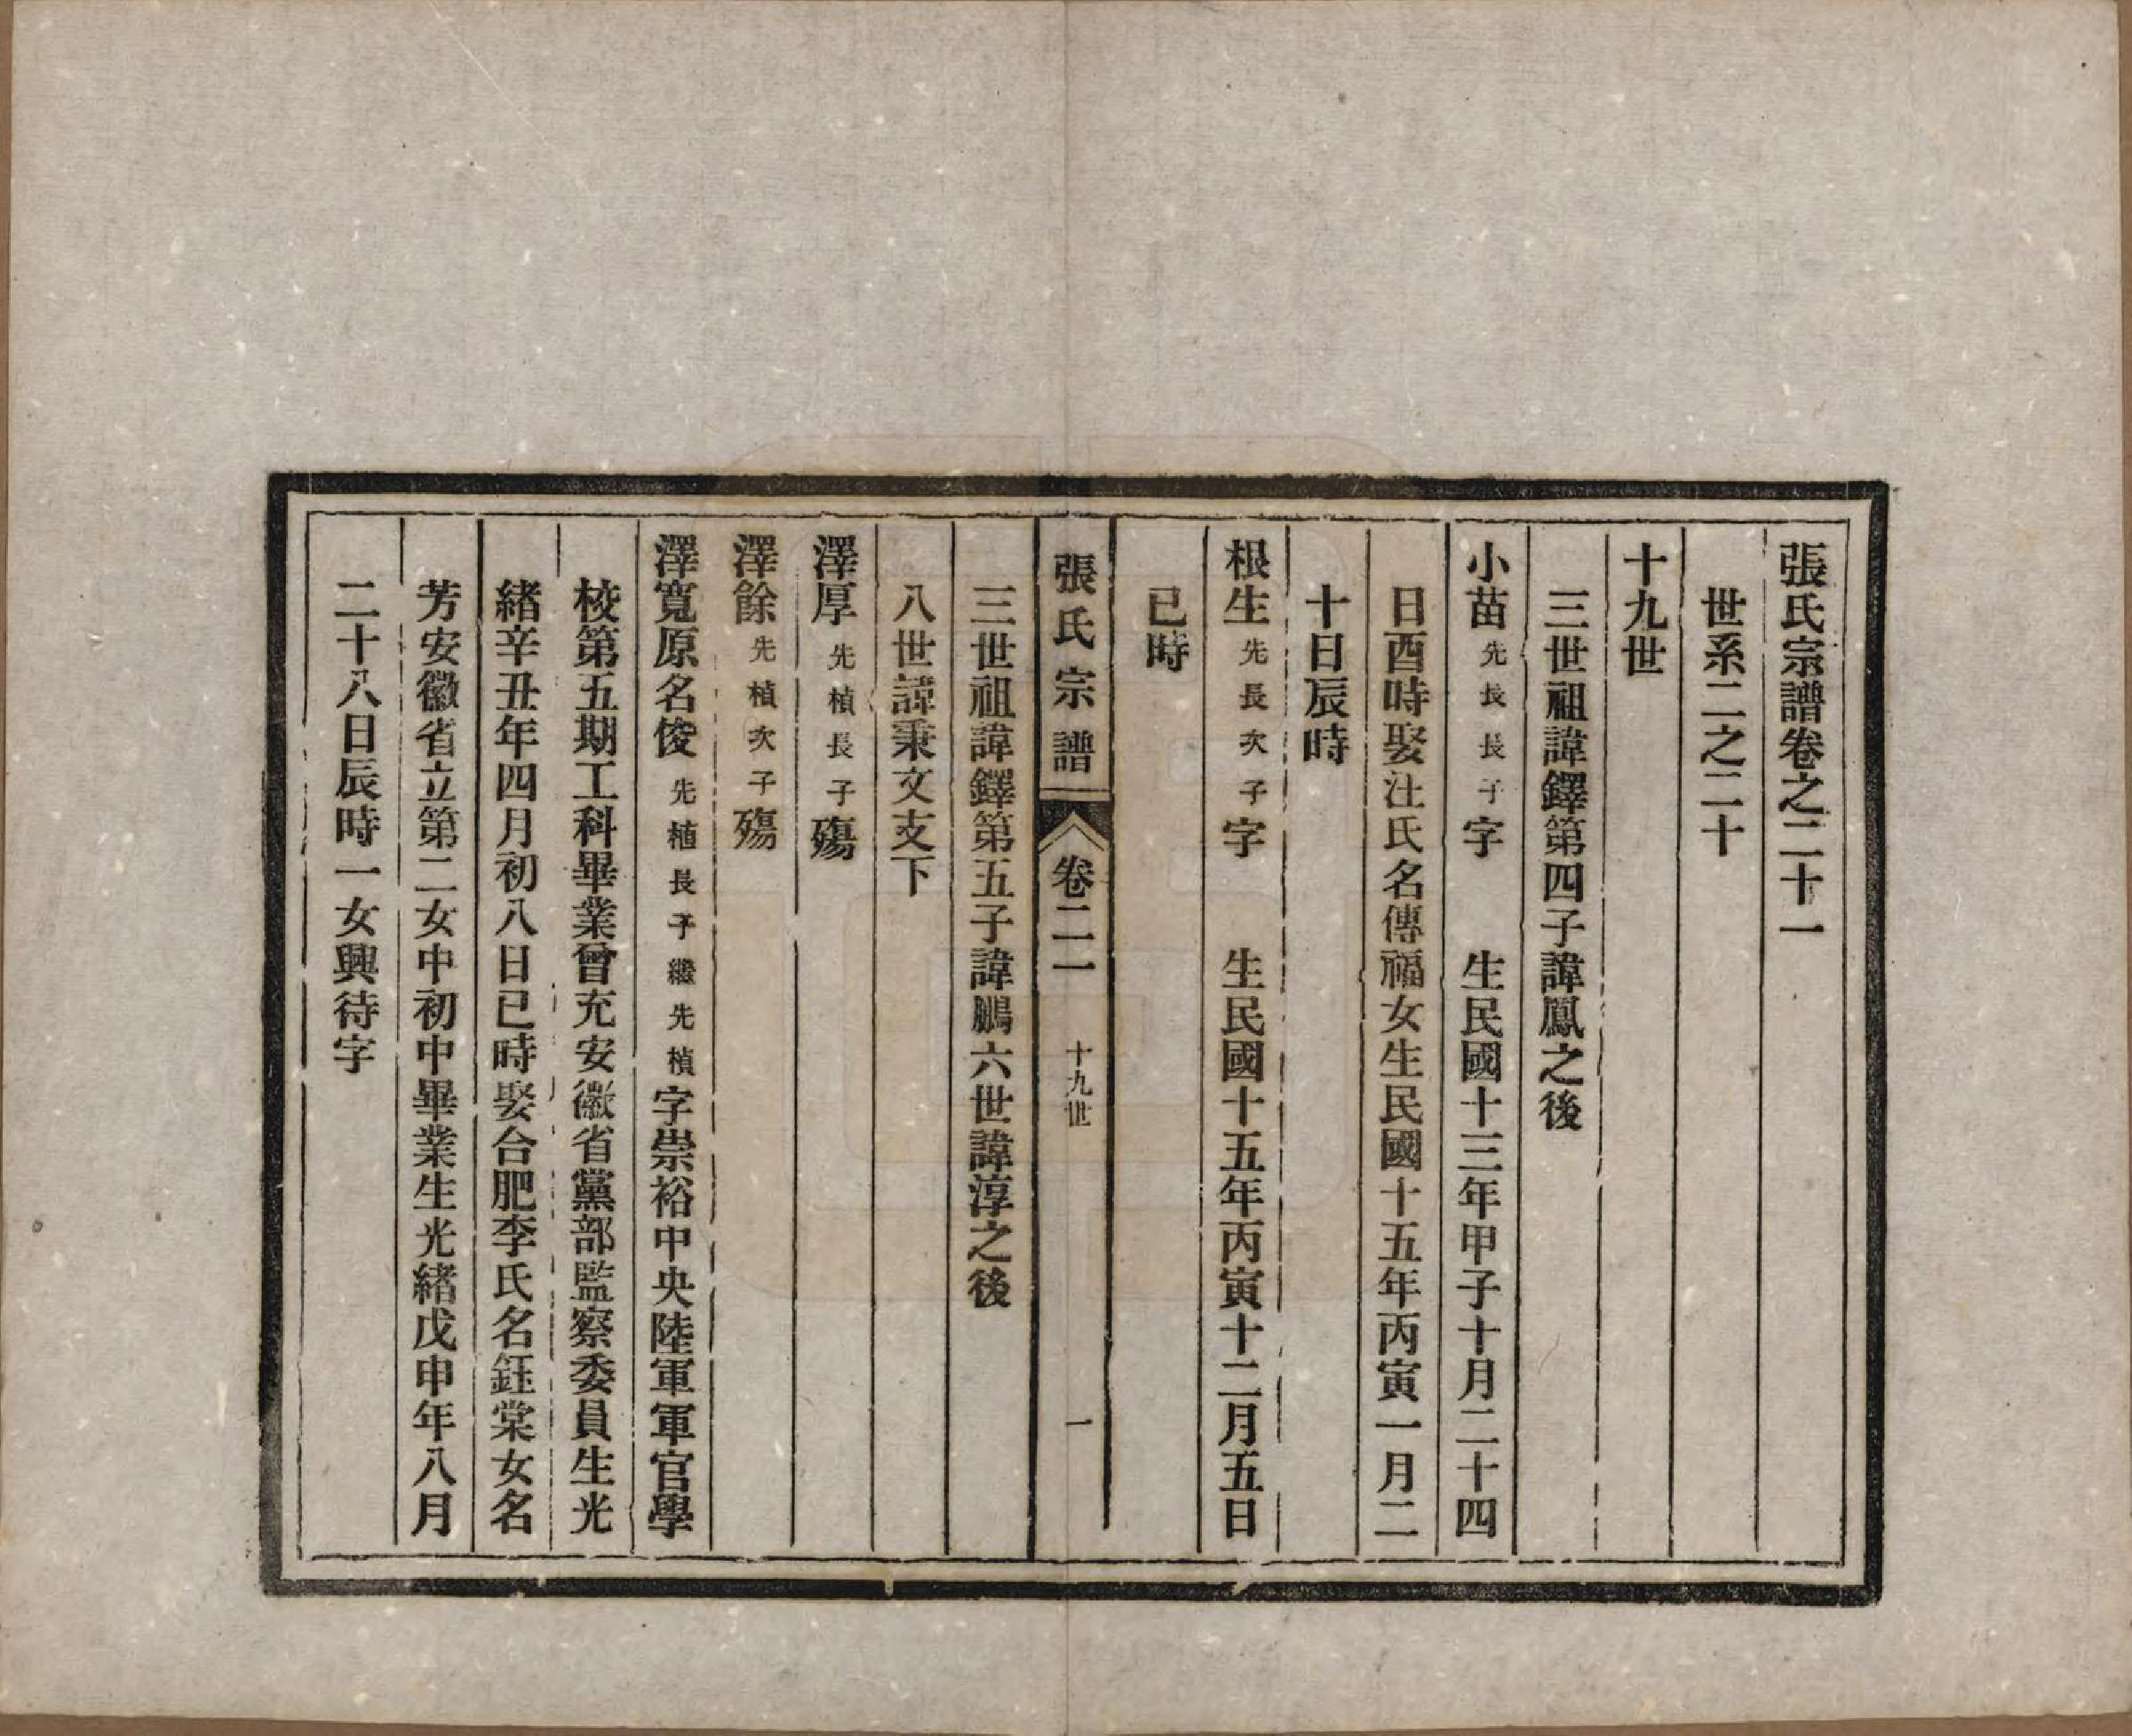 張氏宗譜卷之二十一
世系二之二十
十九世
三世祖諱鐸第四子諱鳳之後
小苗先長長子字　生民國十三年甲子十月二十四
日酉時娶汪氏名傳福女生民國十五年丙寅一月二
十日辰時
根生先長次子字　生民國十五年丙寅十二月五日
巳時
張氏宗譜　卷二一　十九世　一
三世祖諱鐸第五子諱鵬六世諱淳之後
八世諱秉文支下
澤厚先楨長子殤
澤餘先楨次子殤
澤寬原名俊先植長子繼先楨字崇裕中央陸軍軍官學
校第五期工科畢業曾充安徽省黨部監察委員生光
緒辛丑年四月初八日巳時娶合肥李氏名鈺棠女名
芳安徽省立第二女中初中畢業生光緒戊申年八月
二十八日辰時一女興待字